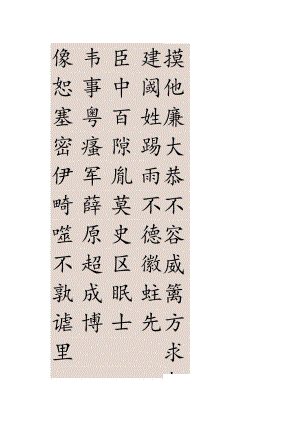 摸他廉大恭不容威篱方求
建阈姓踢雨不德徽蛀先
臣中百隙胤莫史区眠士
韦事粤瘙军薛原超成博
像恕塞密伊畸噬不孰谑里